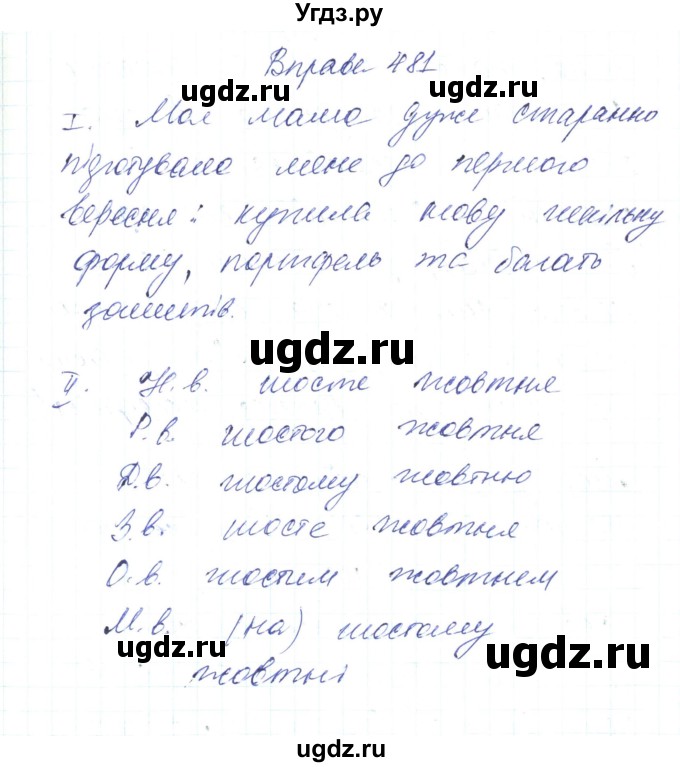 Угдз.ру
Вправа 481
ugdz.ru ugdz.ru
I. Моя мама дуже старанно
підготувала мене до першого
вересня: купила нову шкільну
форму, портфель та багать
зошитів.
ugdz.ru
II. Н.в. шосте жовтня
Р.в. шостого жовтня
Д.в. шостому жовтню
З.в. шосте жовтня
О.в. шостим жовтнем
М.в. (на) шостому
ugdz.ru ugdz.ru
жовтні
ugdz.ru